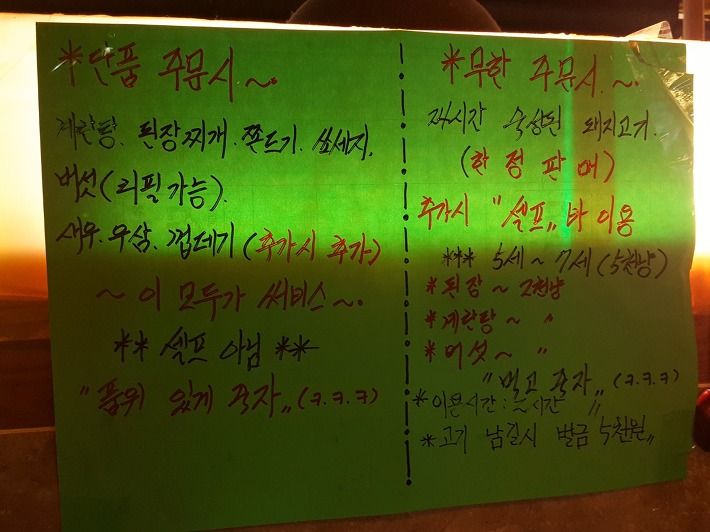 *단품 주문시~.
계란탕. 된장찌개. 쫀드기. 쏘세지.
버섯(리필가능).
새우. 우삼. 껍데기 (추가시 추가)
~ 이 모두가 써비스~.
** 셀프 아님 **
"품위 있게 죽자„ (ㅋ.ㅋ.ㅋ)
*무한 주문시.~
24시간 숙성된 돼지고기.
(한정판매)
추가시 "셀프„ 바 이용
*** 5세~7세 (5천냥)
*된장~ 2천냥
*계란탕~ "
*버섯~ "
"먹고 죽자„ (ㅋ.ㅋ.ㅋ)
*이용시간: 시간 "
*고기 남길시 벌금 5천원„